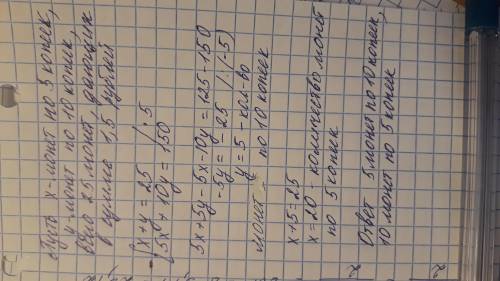 Пусть х-монет по 5 копеек,
у-монет по 10 копеек,
всего 25 монет, дающих
в сумме 1,5 рублей
{x+y=25 | · 5
5x+10y=150
5x+5y-5x-10y=125-150
-5y=-25 | :(-5)
y=5 - кол-во
монет по 10 копеек
x+5=25
x=20 - количество монет
по 5 копеек
Ответ 5 монет по 10 копеек,
10 монет по 5 копеек